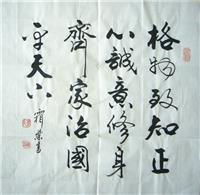 格物致知正
心誠意修身
齊家治國
平天下